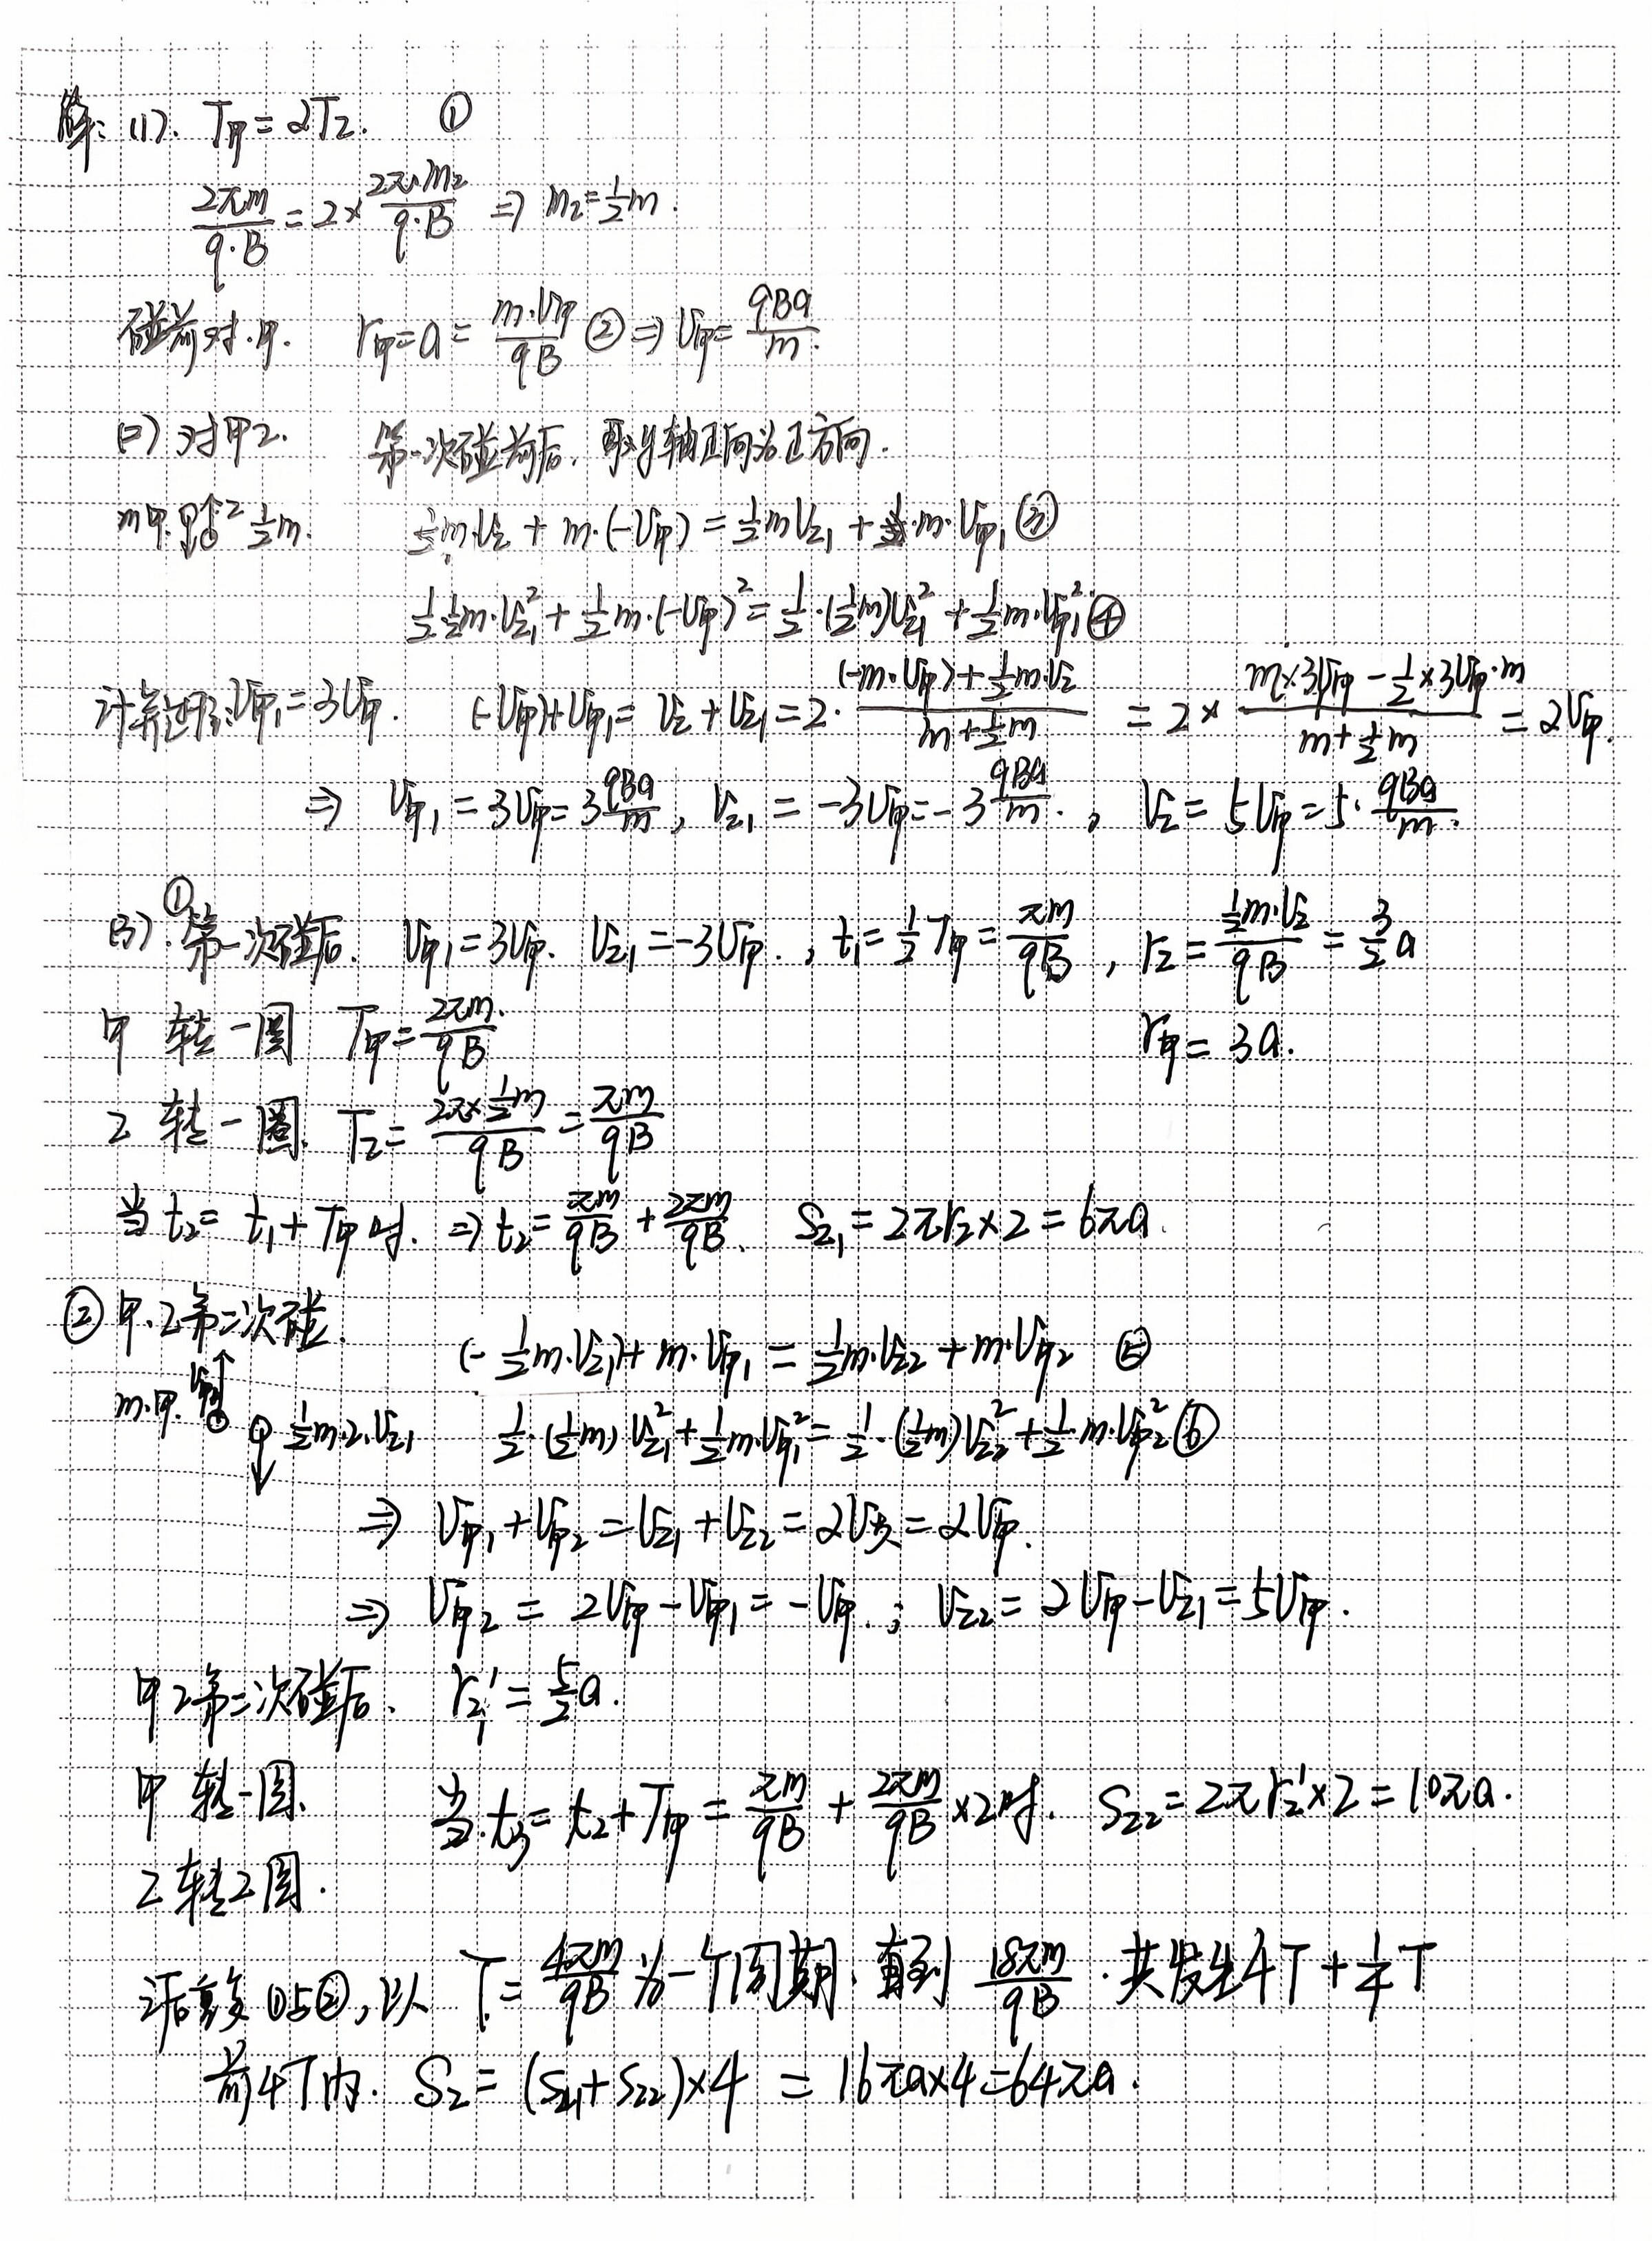 解: (1). T甲 = 2T乙. ①
2πm/q·B = 2× 2π·m乙/q·B ⇒ m乙 = 1/2 m.
碰前对.甲. r甲 = a = m·v甲/qB ② ⇒ v甲 = qBa/m.
(2) 对甲乙. 第一次碰前后. 取y轴正向为正方向.
m甲. 甲 乙 1/2 m. 1/2 m·v乙 + m·(-v甲) = 1/2 m v乙₁ + m·v甲₁ ③
1/2·1/2 m·v乙₁² + 1/2 m·(-v甲)² = 1/2·(1/2 m)v乙₁² + 1/2 m·v甲₁² ④
v甲₁ = 3v甲. (-v甲)+v甲₁ = v乙 + v乙₁ = 2· (-m·v甲)+1/2 m·v乙/m+1/2 m = 2× m×3v甲 - 1/2×3v甲·m/m+1/2 m = 2v甲.
⇒ v甲₁ = 3v甲 = 3 qBa/m, v乙₁ = -3v甲 = -3 qBa/m., v乙 = 5v甲 = 5· qBa/m.
(3). ① 第一次碰后. v甲₁ = 3v甲. v乙₁ = -3v甲., t₁ = 1/2 T甲 = πm/qB, r乙 = 1/2 m·v乙/qB = 3/2 a
甲 转一圈 T甲 = 2πm/qB r甲 = 3a.
乙 转一圈. T乙 = 2π×1/2 m/qB = πm/qB
当 t₂ = t₁ + T甲 时. ⇒ t₂ = πm/qB + 2πm/qB. S乙₁ = 2πr乙×2 = 6πa.
② 甲.乙第二次碰. (-1/2 m·v乙₁)+ m·v甲₁ = 1/2 m·v乙₂ + m·v甲₂ ⑤
m.甲. v甲₁ 1/2 m.乙.v乙₁ 1/2·(1/2 m) v乙₁² + 1/2 m·v甲₁² = 1/2·(1/2 m)v乙₂² + 1/2 m·v甲₂² ⑥
⇒ v甲₁ + v甲₂ = v乙₁ + v乙₂ = 2v共 = 2v甲.
⇒ v甲₂ = 2v甲 - v甲₁ = -v甲.; v乙₂ = 2v甲 - v乙₁ = 5v甲.
甲乙第二次碰后. r乙′ = 5/2 a.
甲 转一圈. 当.t₃ = t₂ + T甲 = πm/qB + 2πm/qB ×2时. S乙₂ = 2πr乙′×2 = 10πa.
乙转2圈.
之后重复①与②, 以 T = 4πm/qB 为一个周期. 直到 18πm/qB. 共发生4T + 1/4 T
前4T内. S乙 = (S乙₁+S乙₂)×4 = 16πa×4 = 64πa.